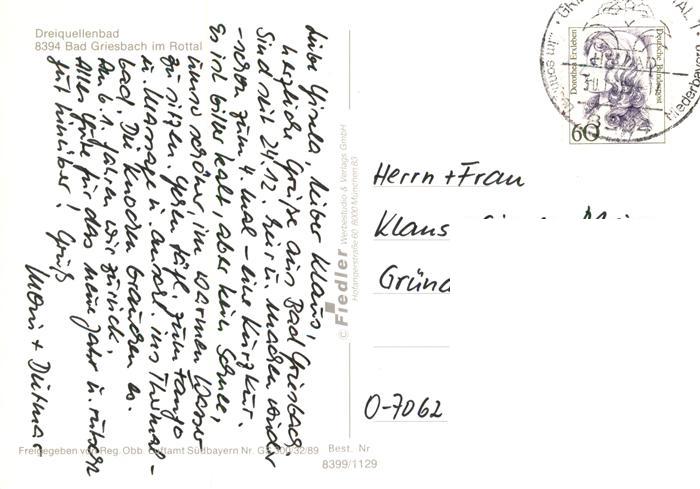 Dreiquellenbad
8394 Bad Griesbach im Rottal
Liebe Gisela, lieber Klaus,
herzliche Grüße aus Bad Griesbach.
Sind seit 24.12. hier u. machen wieder
-schon zum 4. mal - eine Kurzkur.
Es ist bitter kalt, aber kein Schnee,
umso schöner, im warmen Wasser
zu sitzen. Gehen tägl. zum Fango
u. Massage u. anschl. ins Thermal-
bad. Die Knochen brauchen es.
Am 6.1. fahren wir zurück.
Alles Gute für das neue Jahr u. rutscht
gut hinüber! Gruß
+ Dietmar
© Fiedler Werbestudio & Verlags GmbH
Hofangerstraße 60, 8000 München 83
Deutsche Bundespost
Dorothea Erxleben
60
Niederbayern
Herrn + Frau
Klaus
Gründ
O-7062
Freigegeben von Reg. Obb. Luftamt Südbayern Nr. GS 300/32/89
Best. Nr
8399/1129